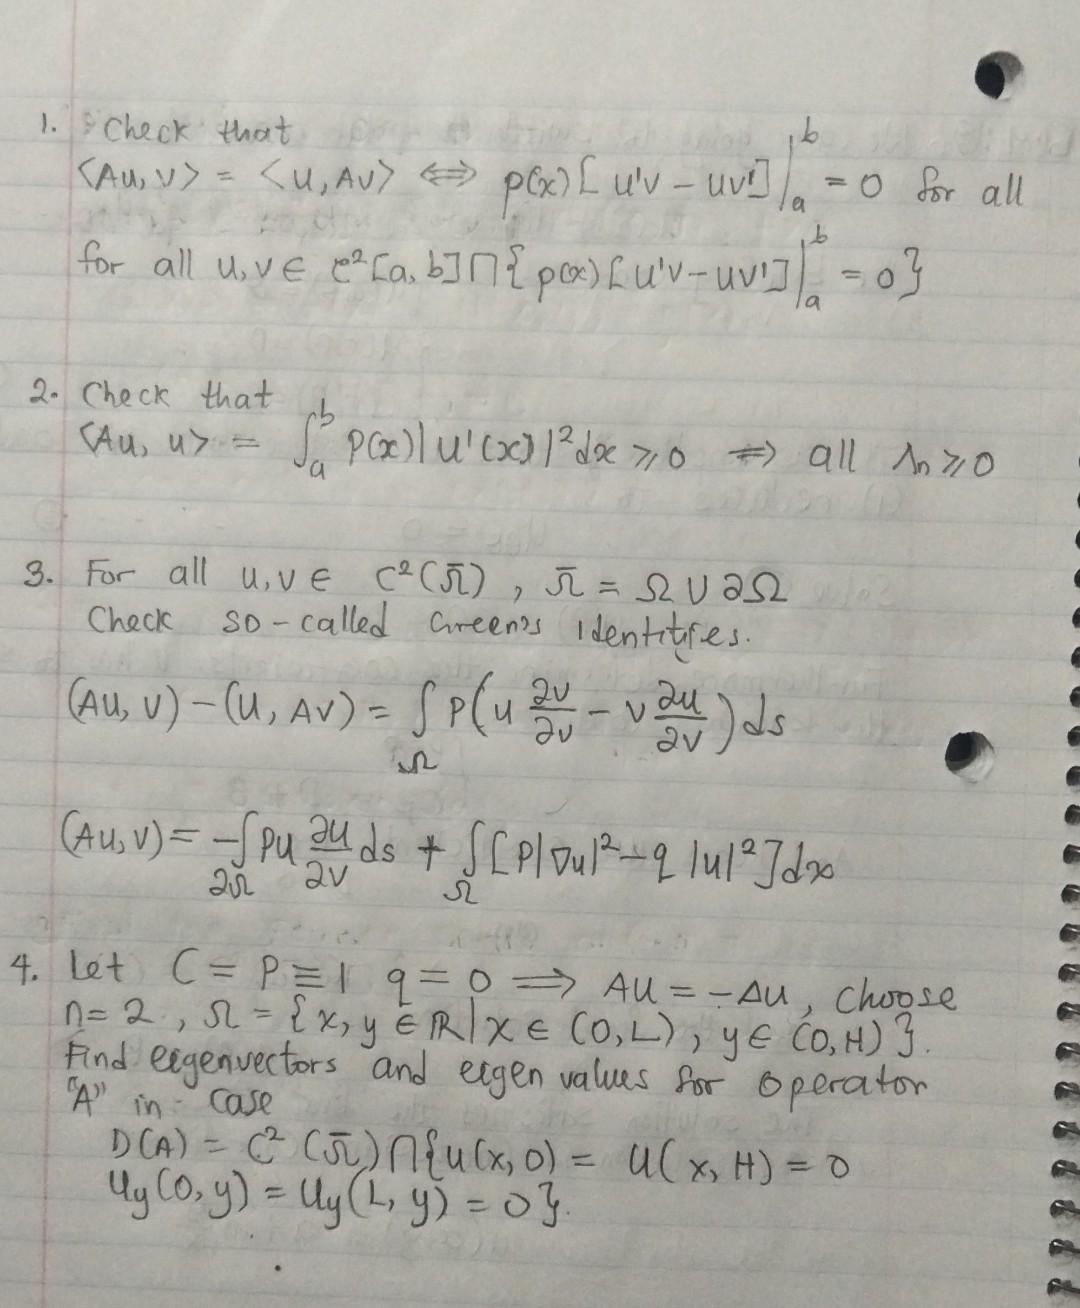 1. Check that
<Au, v> = <u, Av> ⟺ p(x)[u'v - uv']|ₐᵇ = 0 for all
for all u, v ∈ C²[a, b] ∩ {p(x)[u'v - uv']|ₐᵇ = 0}
2. Check that
<Au, u> = ∫ₐᵇ p(x)|u'(x)|²dx ⩾ 0 ⟹ all λn ⩾ 0
3. For all u, v ∈ C²(Ω̄), Ω̄ = Ω ∪ ∂Ω
Check so-called Green's identities.
(Au, v) - (u, Av) = ∫_Ω P(u ∂v/∂ν - v ∂u/∂ν) ds
(Au, v) = -∫_∂Ω Pu ∂u/∂ν ds + ∫_Ω [P|∇u|² - q|u|²]dx
4. Let C = P ≡ 1 q = 0 ⟹ Au = -Δu, choose
n = 2, Ω = {x, y ∈ ℝ | x ∈ (0, L), y ∈ (0, H)}.
Find eigenvectors and eigen values for operator
"A" in case
D(A) = C²(Ω̄) ∩ {u(x, 0) = u(x, H) = 0
uy(0, y) = uy(L, y) = 0}.